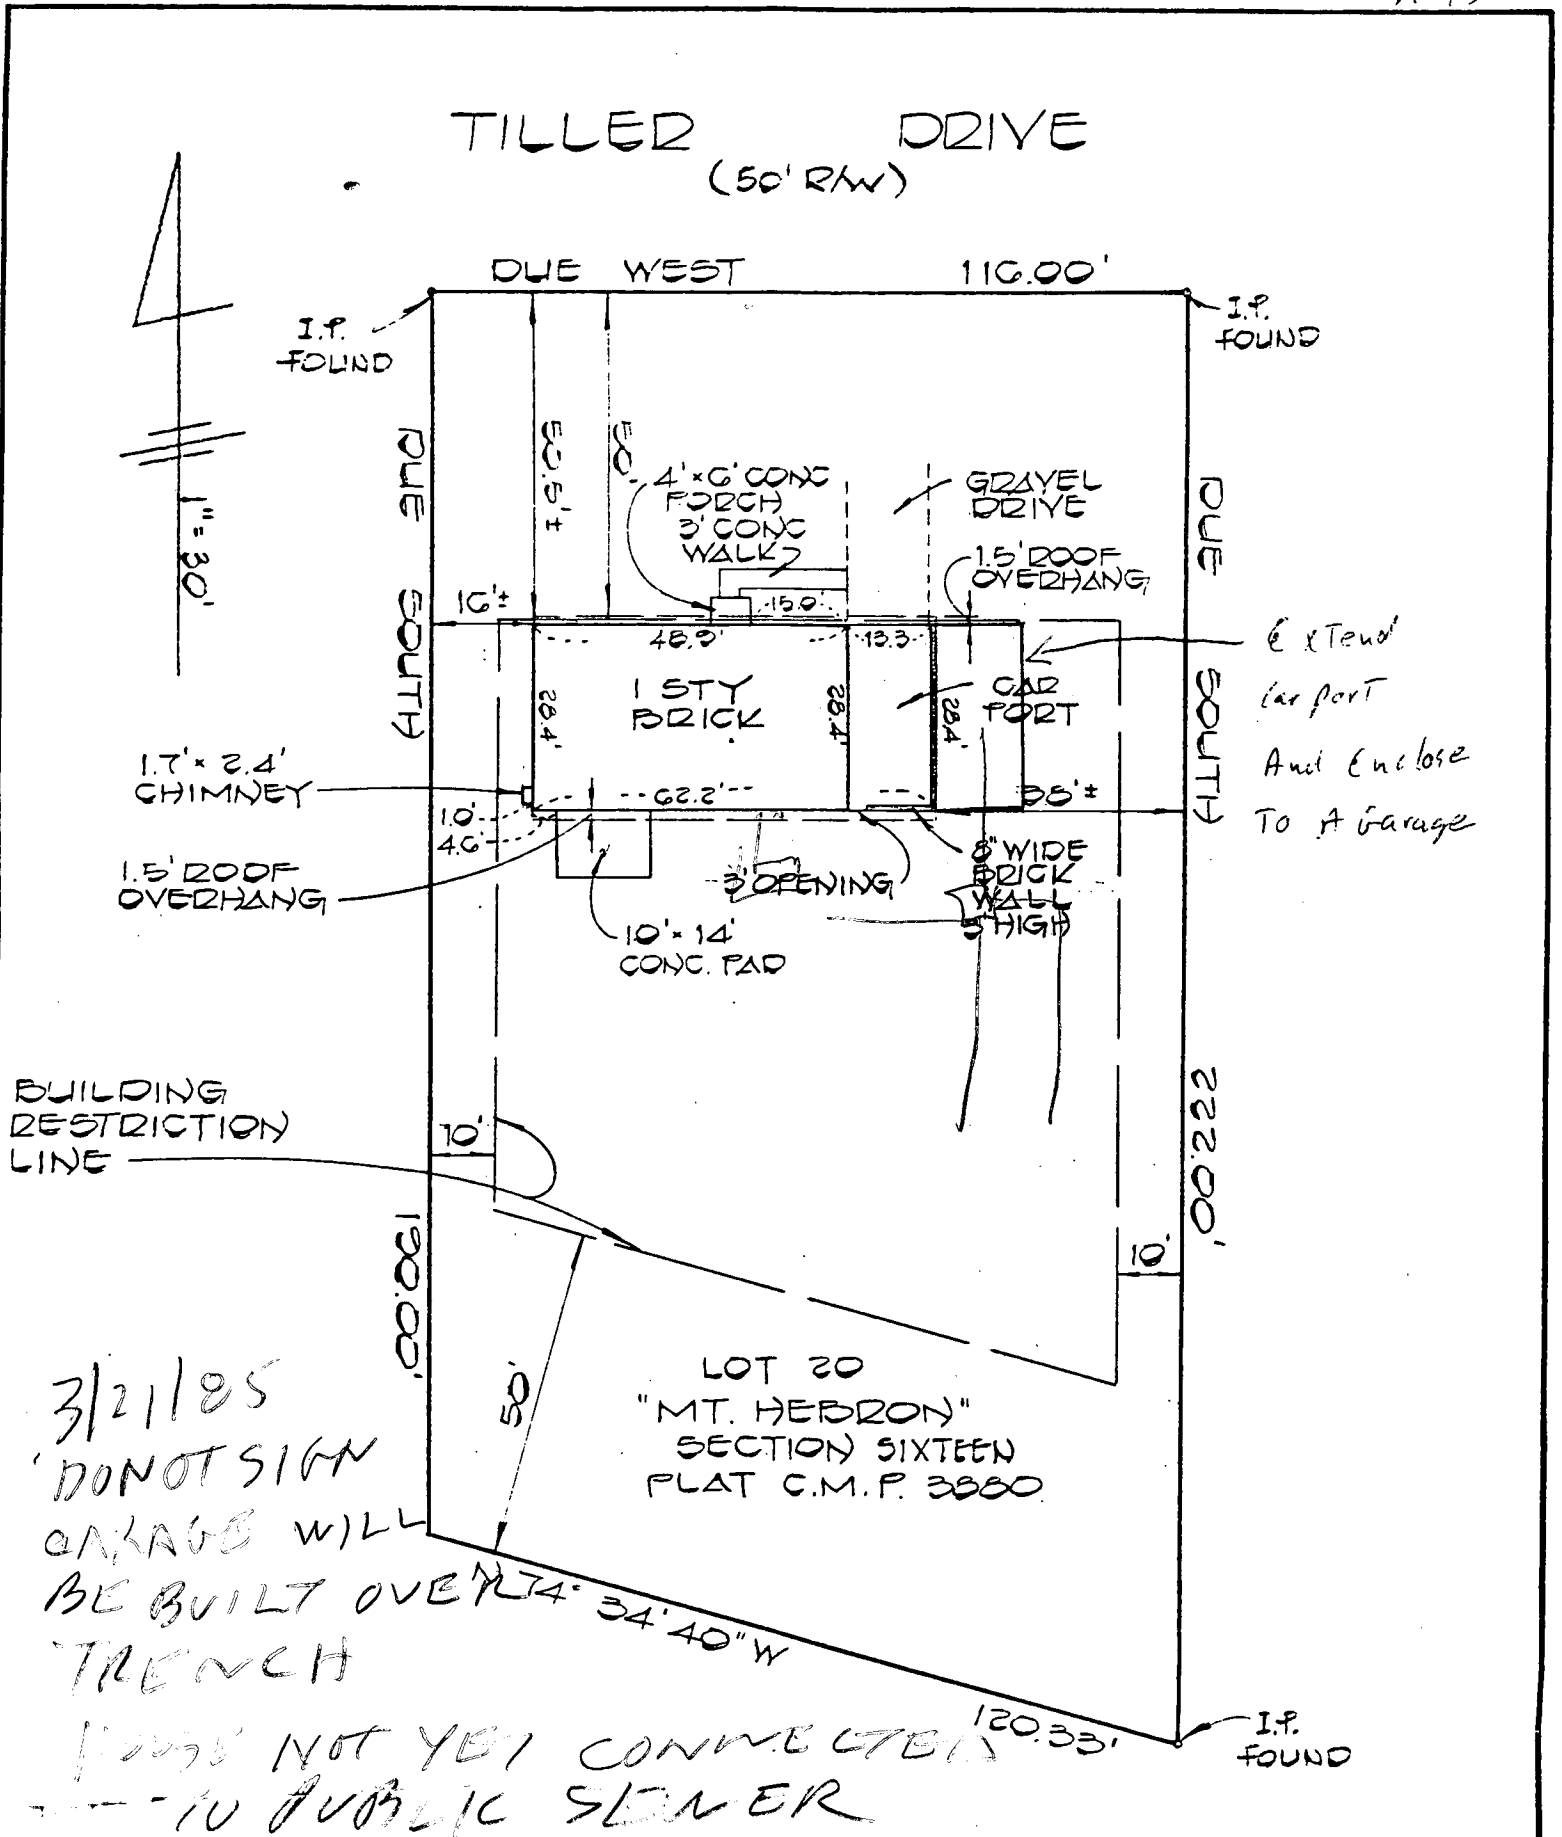 TILLER DRIVE
(50' R/W)
DUE WEST 116.00'
I.P.
FOUND
I.P.
FOUND
1" = 30'
DUE SOUTH
190.00'
DUE SOUTH
222.00'
50.5'±
50'
4' × 6' CONC
PORCH
3' CONC
WALK
GRAVEL
DRIVE
1.5' ROOF
OVERHANG
16'±
15.0'
48.9'
13.3
1 STY
BRICK
28.4'
28.4'
28.4'
CAR
PORT
Extend
Carport
And Enclose
To A Garage
1.7' × 2.4'
CHIMNEY
62.2'
38'±
1.0'
4.6'
1.5' ROOF
OVERHANG
3' OPENING
8" WIDE
BRICK
WALL
5' HIGH
10' × 14'
CONC. PAD
BUILDING
RESTRICTION
LINE
10'
10'
50'
LOT 20
"MT. HEBRON"
SECTION SIXTEEN
PLAT C.M.P. 3880
3/21/85
DO NOT SIGN
GARAGE WILL
BE BUILT OVER
TRENCH
N74° 34' 40" W
120.33'
I.P.
FOUND
HOUSE NOT YET CONNECTED
TO PUBLIC SEWER